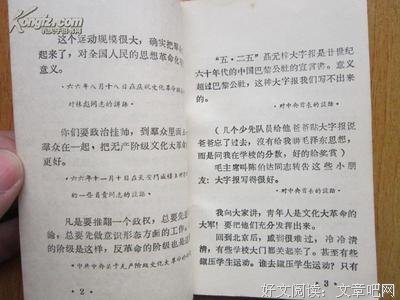 这个运动规模很大，确实把群
起来了，对全国人民的思想革命化
意义。
·六六年八月十八日在庆祝文化革命
对林彪同志的讲话·
你们要政治挂帅，到群众里面去
群众在一起，把无产阶级文化大革命
更好。
·六六年十一月十日在天安门城楼上对
的一些负责同志的讲话·
凡是要推翻一个政权，总要先造
总要先做意识形态方面的工作。
的阶级是这样，反革命的阶级也是
·中共中央关于无产阶级文化大革命的
·2·
“五·二五”聂元梓大字报是廿世纪
六十年代的中国巴黎公社的宣言书，意义
超过巴黎公社，这种大字报我们写不出来
的。
·对中央首长的讲话·
（几个少先队员给他爸爸贴大字报说
爸爸忘了过去，没有给我讲毛泽东思想，
而是问我在学校的分数，好的给奖赏）
毛主席叫陈伯达同志转告这些小朋
友：大字报写得很好。
·对中央首长的讲话·
我向大家讲，青年人是文化大革命的
大军！要把他们充分发挥出来。
回到北京后，感到很难过，冷冷清
清，有些学校大门都关起来了。甚至有些
镇压学生运动？谁去镇压学生运动？只有
3·
好文阅读：文章吧网